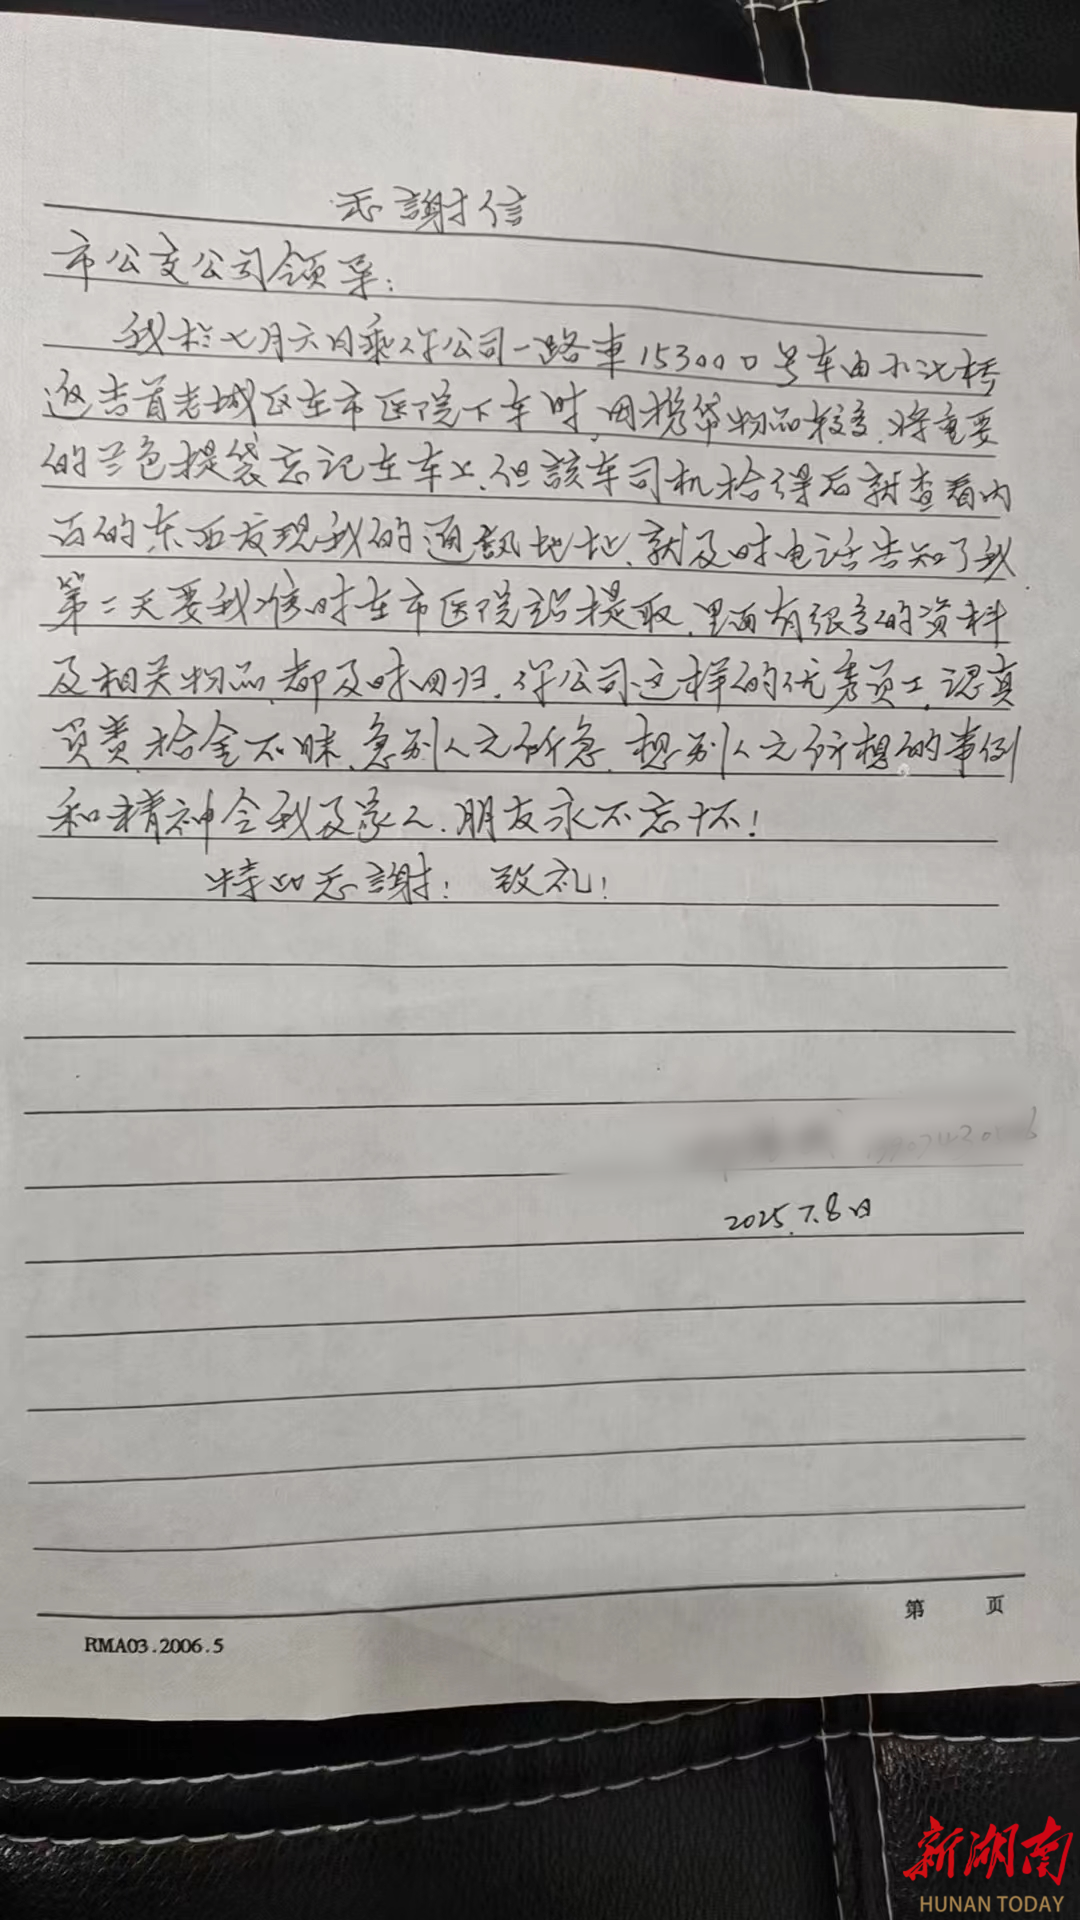 忎謝信
市公交公司领导：
我於七月六日乘你公司一路車153000号车由小汽桥
返吉首老城区在市医院下车时，因携带物品较多，将重要
的兰色提袋忘记在车上，但該车司机拾得后就查看内
面的东西发现我的通訊地址，就及时电话告知了我
第二天要我准时在市医院站提取，里面有很多的资料
及相关物品，都及时回归，你公司这样的优秀员工，认真
负责，拾金不昧，急别人之所急，想别人之所想的事例
和精神令我及家人、朋友永不忘怀！
特此忎謝！ 致礼！
2025.7.8日
第 页
RMA03.2006.5
新湖南
HUNAN TODAY